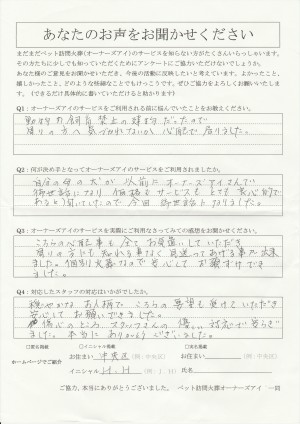 あなたのお声をお聞かせください
まだまだペット訪問火葬(オーナーズアイ)のサービスを知らない方がたくさんいらっしゃいます。
その方たちに少しでも知っていただくためにアンケートにご協力いただけないでしょうか。
あなた様のご意見をお聞かせいただき、今後の活動に反映したいと考えています。よかったこと、
嬉しかったこと、どのような些細なことでもけっこうです。ぜひご協力をよろしくお願いいたしま
す。(できるだけ具体的に書いていただけると助かります)
Q1:オーナーズアイのサービスをご利用される前に悩んでいたことをお教えください。
動物お骨
禁止の
だったので
周りの方へ気づかれないか心配で居りました。
Q2:何が決め手となってオーナーズアイのサービスをご利用されましたか。
自分の母の犬が以前にオーナーズアイさんで
御世話になり価格もサービスもとても安心的で
あると聞いていたので今回御世話になりました。
Q3:オーナーズアイのサービスを実際にご利用なさってみての感想をお聞かせください。
こちらの心配事も全てお気遣いしていただき
周りの方にも知れる事なく見送ってあげる事が出来
ました。個別火葬なので安心してお願いすることができ
ました。
Q4:対応したスタッフの対応はいかがでしたか。
穏やかなお人柄でこちらの要望も受けていただき
安心してお願いできました。
傷心のところ、スタッフさんの優しい対応で安らぎ
ました。本当にありがとうございました。
ホームページでご紹介
□匿名掲載
□イニシャル掲載
□実名掲載
お住まい 中央区 (例:中央区)
お住まい (例:中央区)
イニシャル H.H (例:J.H)
氏名
ご協力、本当にありがとうございました。 ペット訪問火葬オーナーズアイ 一同